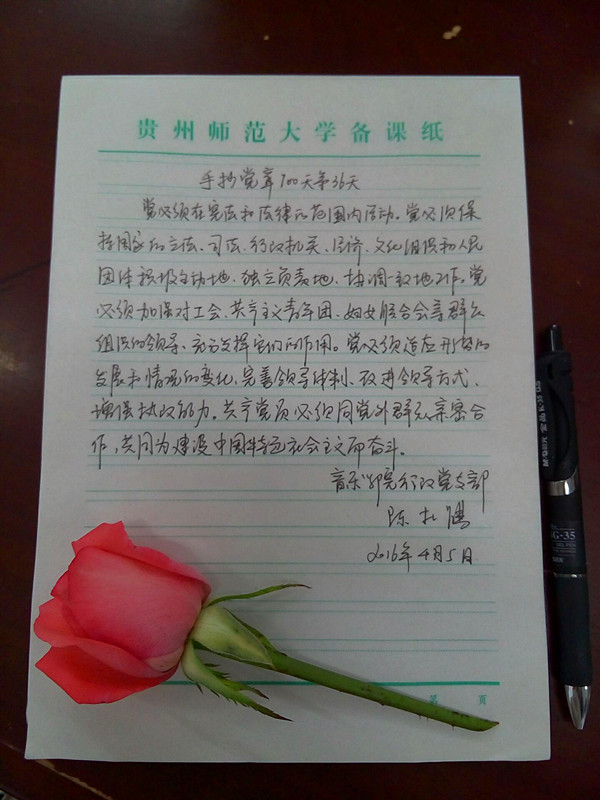 贵州师范大学备课纸
手抄党章100天第36天
党必须在宪法和法律的范围内活动。党必须保
持国家的立法、司法、行政机关、经济、文化组织和人民
团体积极主动地、独立负责地、协调一致地工作。党
必须加强对工会、共产主义青年团、妇女联合会等群众
组织的领导、充分发挥它们的作用。党必须适应形势的
发展和情况的变化、完善领导体制、改进领导方式、
增强执政能力。共产党员必须同党外群众亲密合
作,共同为建设中国特色社会主义而奋斗。
音乐学院行政党支部
陈
2016年4月5日
第 页
M&G 晨光 K-35 0.5
G-35